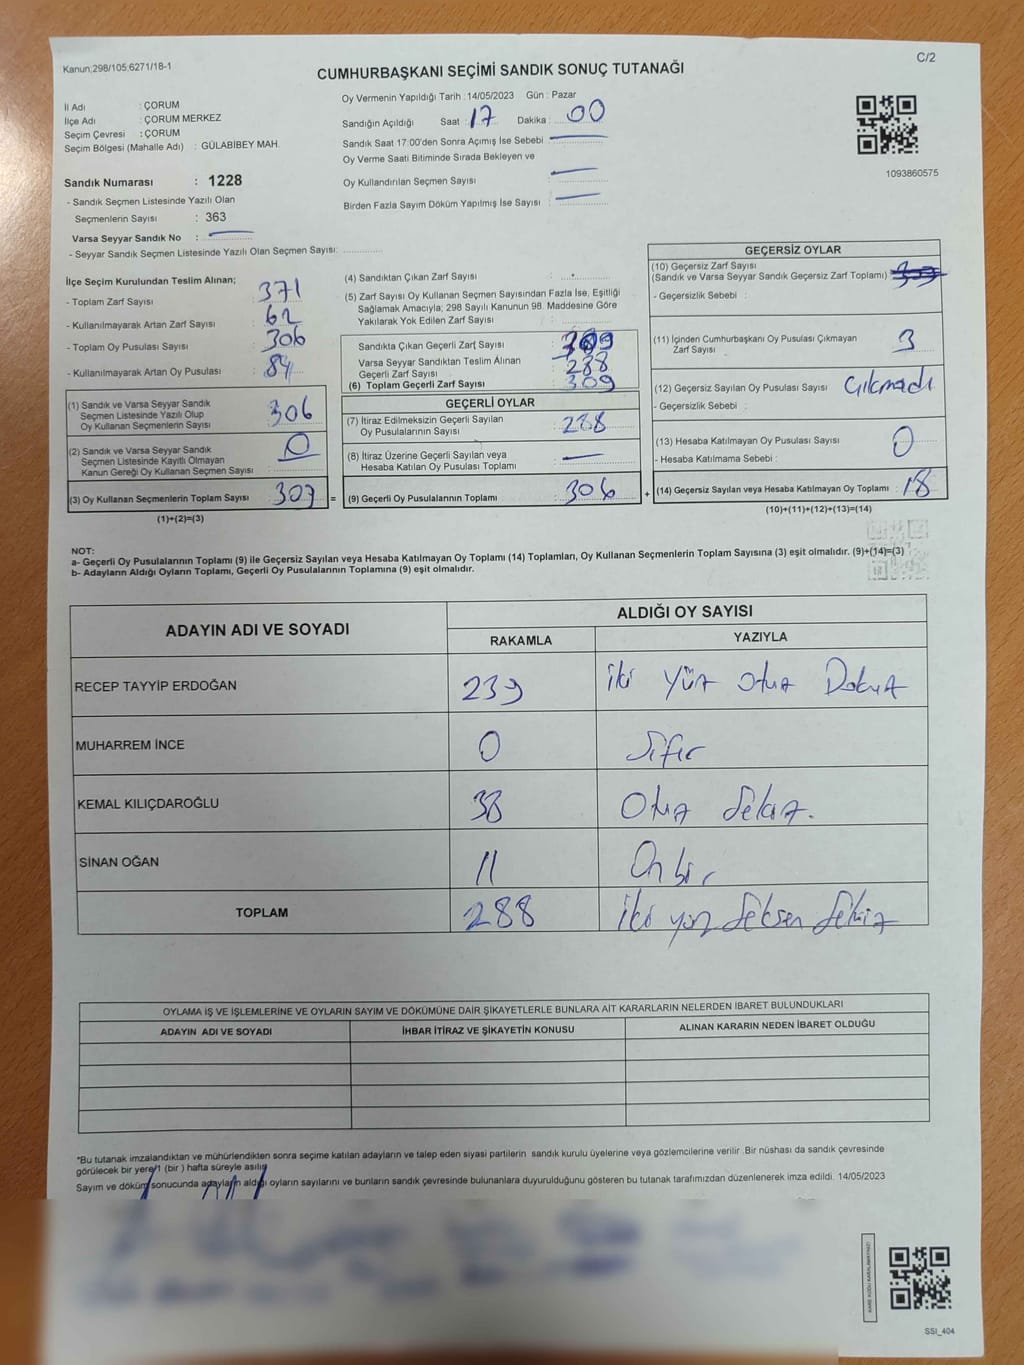 Kanun;298/105;6271/18-1
C/2
CUMHURBAŞKANI SEÇİMİ SANDIK SONUÇ TUTANAĞI
İl Adı : ÇORUM
İlçe Adı : ÇORUM MERKEZ
Seçim Çevresi : ÇORUM
Seçim Bölgesi (Mahalle Adı) : GÜLABİBEY MAH.
Sandık Numarası : 1228
- Sandık Seçmen Listesinde Yazılı Olan
Seçmenlerin Sayısı : 363
Varsa Seyyar Sandık No :
- Seyyar Sandık Seçmen Listesinde Yazılı Olan Seçmen Sayısı:
Oy Vermenin Yapıldığı Tarih : 14/05/2023 Gün : Pazar
Sandığın Açıldığı Saat : 17 Dakika : 00
Sandık Saat 17:00'den Sonra Açımış İse Sebebi
Oy Verme Saati Bitiminde Sırada Bekleyen ve
Oy Kullandırılan Seçmen Sayısı :
Birden Fazla Sayım Döküm Yapılmış İse Sayısı :
1093860575
İlçe Seçim Kurulundan Teslim Alınan;
- Toplam Zarf Sayısı : 371
- Kullanılmayarak Artan Zarf Sayısı : 62
- Toplam Oy Pusulası Sayısı : 306
- Kullanılmayarak Artan Oy Pusulası : 84
(1) Sandık ve Varsa Seyyar Sandık
Seçmen Listesinde Yazılı Olup
Oy Kullanan Seçmenlerin Sayısı : 306
(2) Sandık ve Varsa Seyyar Sandık
Seçmen Listesinde Kayıtlı Olmayan
Kanun Gereği Oy Kullanan Seçmen Sayısı : 0
(3) Oy Kullanan Seçmenlerin Toplam Sayısı : 307 =
(1)+(2)=(3)
(4) Sandıktan Çıkan Zarf Sayısı :
(5) Zarf Sayısı Oy Kullanan Seçmen Sayısından Fazla İse, Eşitliği
Sağlamak Amacıyla; 298 Sayılı Kanunun 98. Maddesine Göre
Yakılarak Yok Edilen Zarf Sayısı :
Sandıkta Çıkan Geçerli Zarf Sayısı :
Varsa Seyyar Sandıktan Teslim Alınan
Geçerli Zarf Sayısı : 288
(6) Toplam Geçerli Zarf Sayısı : 309
GEÇERLİ OYLAR
(7) İtiraz Edilmeksizin Geçerli Sayılan
Oy Pusulalarının Sayısı : 288
(8) İtiraz Üzerine Geçerli Sayılan veya
Hesaba Katılan Oy Pusulası Toplamı :
(9) Geçerli Oy Pusulalarının Toplamı : 306 +
GEÇERSİZ OYLAR
(10) Geçersiz Zarf Sayısı
(Sandık ve Varsa Seyyar Sandık Geçersiz Zarf Toplamı) :
- Geçersizlik Sebebi :
(11) İçinden Cumhurbaşkanı Oy Pusulası Çıkmayan
Zarf Sayısı : 3
(12) Geçersiz Sayılan Oy Pusulası Sayısı : Çıkmadı
- Geçersizlik Sebebi :
(13) Hesaba Katılmayan Oy Pusulası Sayısı : 0
- Hesaba Katılmama Sebebi :
(14) Geçersiz Sayılan veya Hesaba Katılmayan Oy Toplamı : 18
(10)+(11)+(12)+(13)=(14)
NOT:
a- Geçerli Oy Pusulalarının Toplamı (9) ile Geçersiz Sayılan veya Hesaba Katılmayan Oy Toplamı (14) Toplamları, Oy Kullanan Seçmenlerin Toplam Sayısına (3) eşit olmalıdır. (9)+(14)=(3)
b- Adayların Aldığı Oyların Toplamı, Geçerli Oy Pusulalarının Toplamına (9) eşit olmalıdır.
ADAYIN ADI VE SOYADI
ALDIĞI OY SAYISI
RAKAMLA YAZIYLA
RECEP TAYYİP ERDOĞAN 239 iki yüz otuz Dokuz
MUHARREM İNCE 0 Sıfır
KEMAL KILIÇDAROĞLU 38 Otuz Sekiz.
SİNAN OĞAN 11 On bir
TOPLAM 288 iki yüz Seksen Sekiz
OYLAMA İŞ VE İŞLEMLERİNE VE OYLARIN SAYIM VE DÖKÜMÜNE DAİR ŞİKAYETLERLE BUNLARA AİT KARARLARIN NELERDEN İBARET BULUNDUKLARI
ADAYIN ADI VE SOYADI İHBAR İTİRAZ VE ŞİKAYETİN KONUSU ALINAN KARARIN NEDEN İBARET OLDUĞU
*Bu tutanak imzalandıktan ve mühürlendikten sonra seçime katılan adayların ve talep eden siyasi partilerin sandık kurulu üyelerine veya gözlemcilerine verilir. Bir nüshası da sandık çevresinde
görülecek bir yere 1 (bir) hafta süreyle asılır.
Sayım ve döküm sonucunda adayların aldığı oyların sayılarını ve bunların sandık çevresinde bulunanlara duyurulduğunu gösteren bu tutanak tarafımızdan düzenlenerek imza edildi. 14/05/2023
KARE KODU KARALAMAYINIZ!
SSI_404